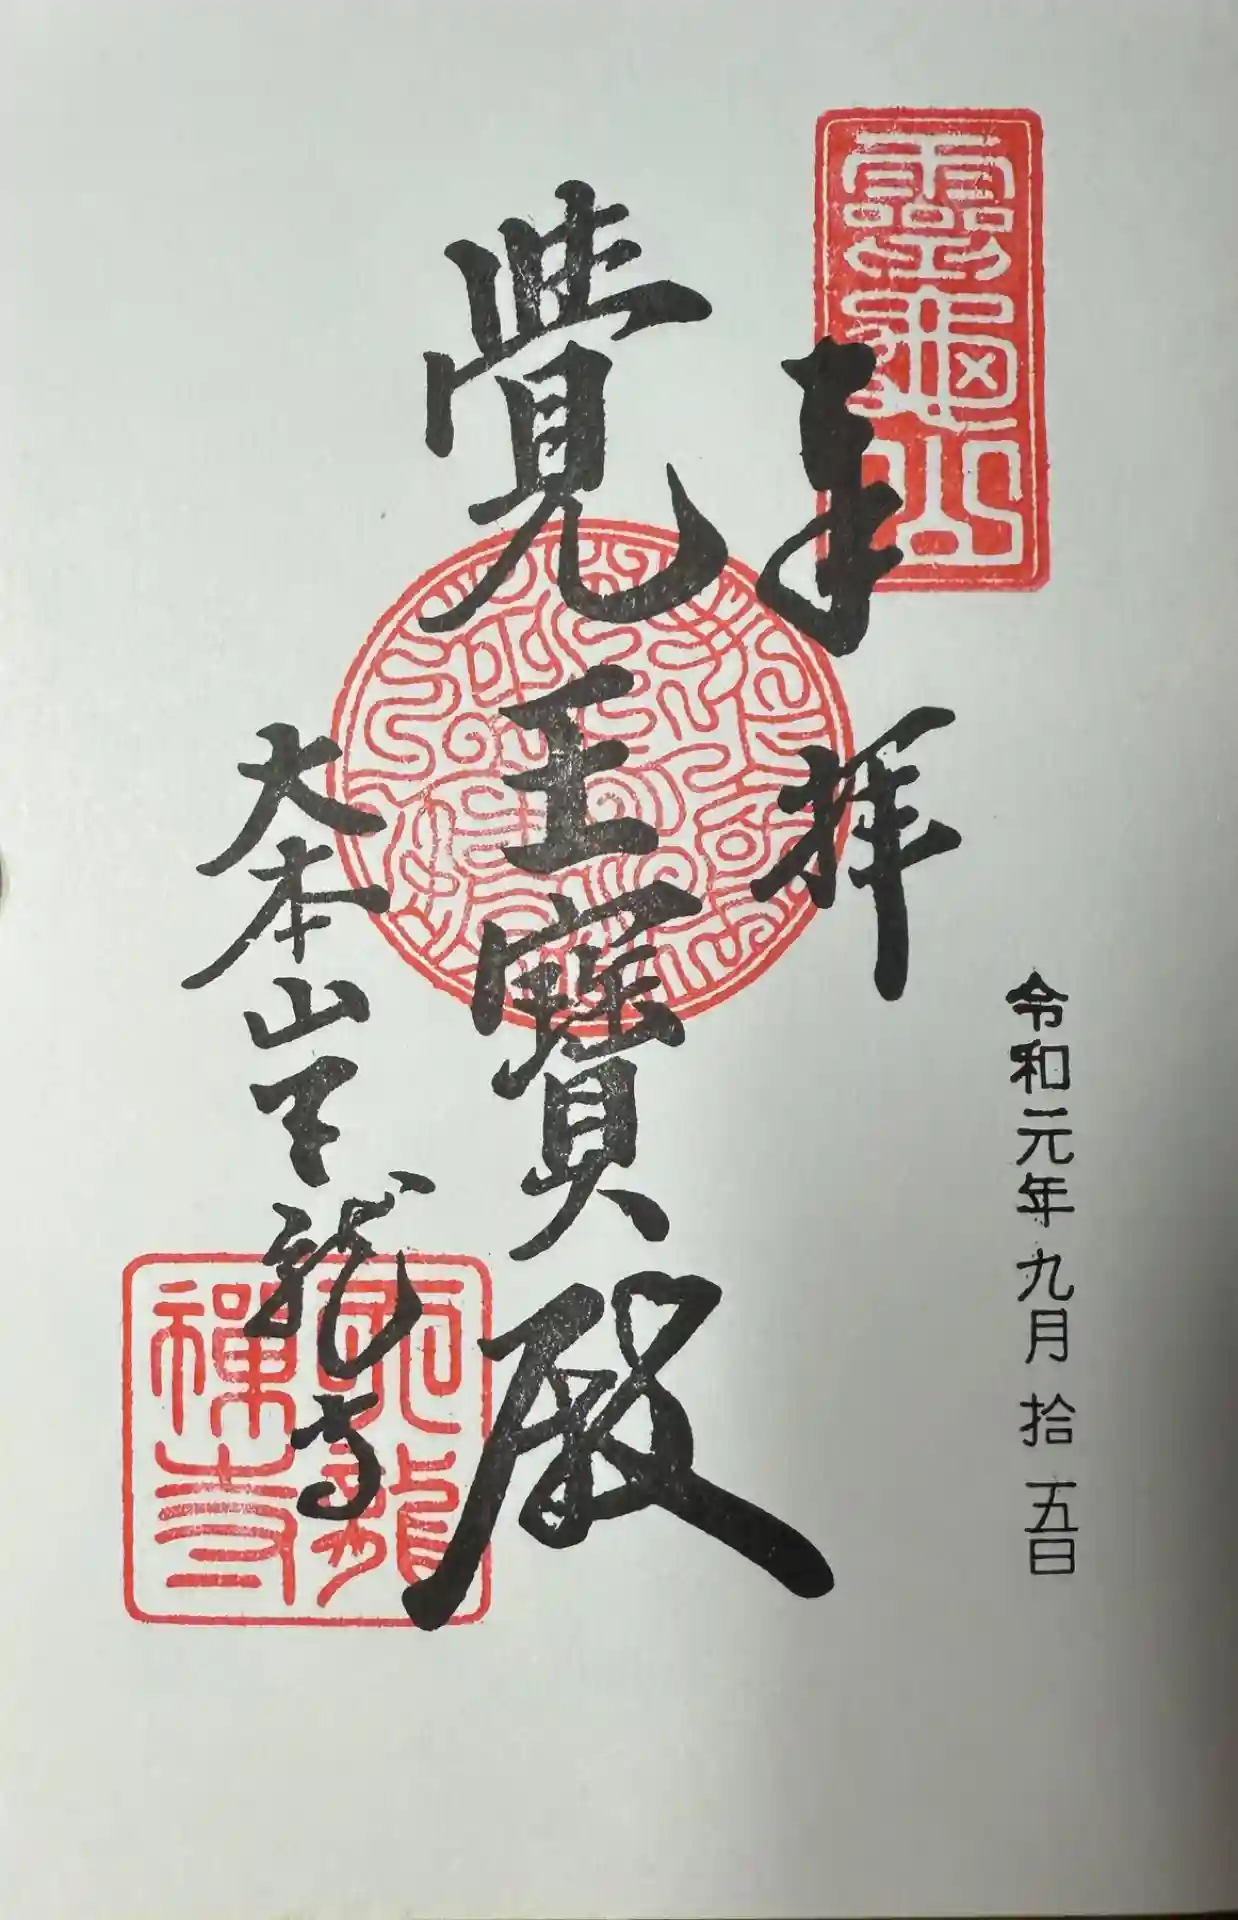 令和元年九月拾五日
靈龜山
奉拝
覺王寶殿
大本山天龍寺
天龍禪寺